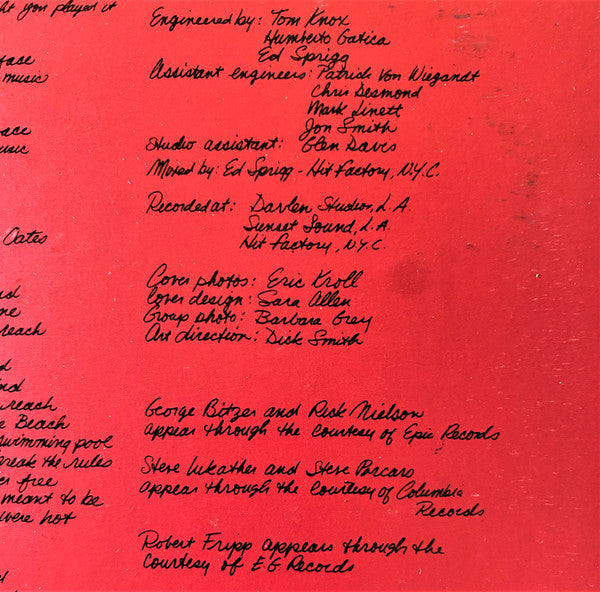 ht you played it
face
music
ace
usic
Oates
nd
me
reach
d
ind
reach
e Beach
swimming pool
reak the rules
er free
meant to be
were hot
Engineered by: Tom Knox
Humberto Gatica
Ed Sprigg
Assistant engineers: Patrick Von Wiegandt
Chris Desmond
Mark Linett
Jon Smith
Studio assistant: Glen Davis
Mixed by: Ed Sprigg - Hit Factory, N.Y.C.
Recorded at: Davlen Studios, L.A.
Sunset Sound, L.A.
Hit Factory, N.Y.C.
Cover photos: Eric Kroll
Cover design: Sara Allen
Group photo: Barbara Grey
Art direction: Dick Smith
George Bitzer and Rick Nielson
appear through the courtesy of Epic Records
Steve Lukather and Steve Porcaro
appear through the courtesy of Columbia
Records
Robert Fripp appears through the
courtesy of E.G Records